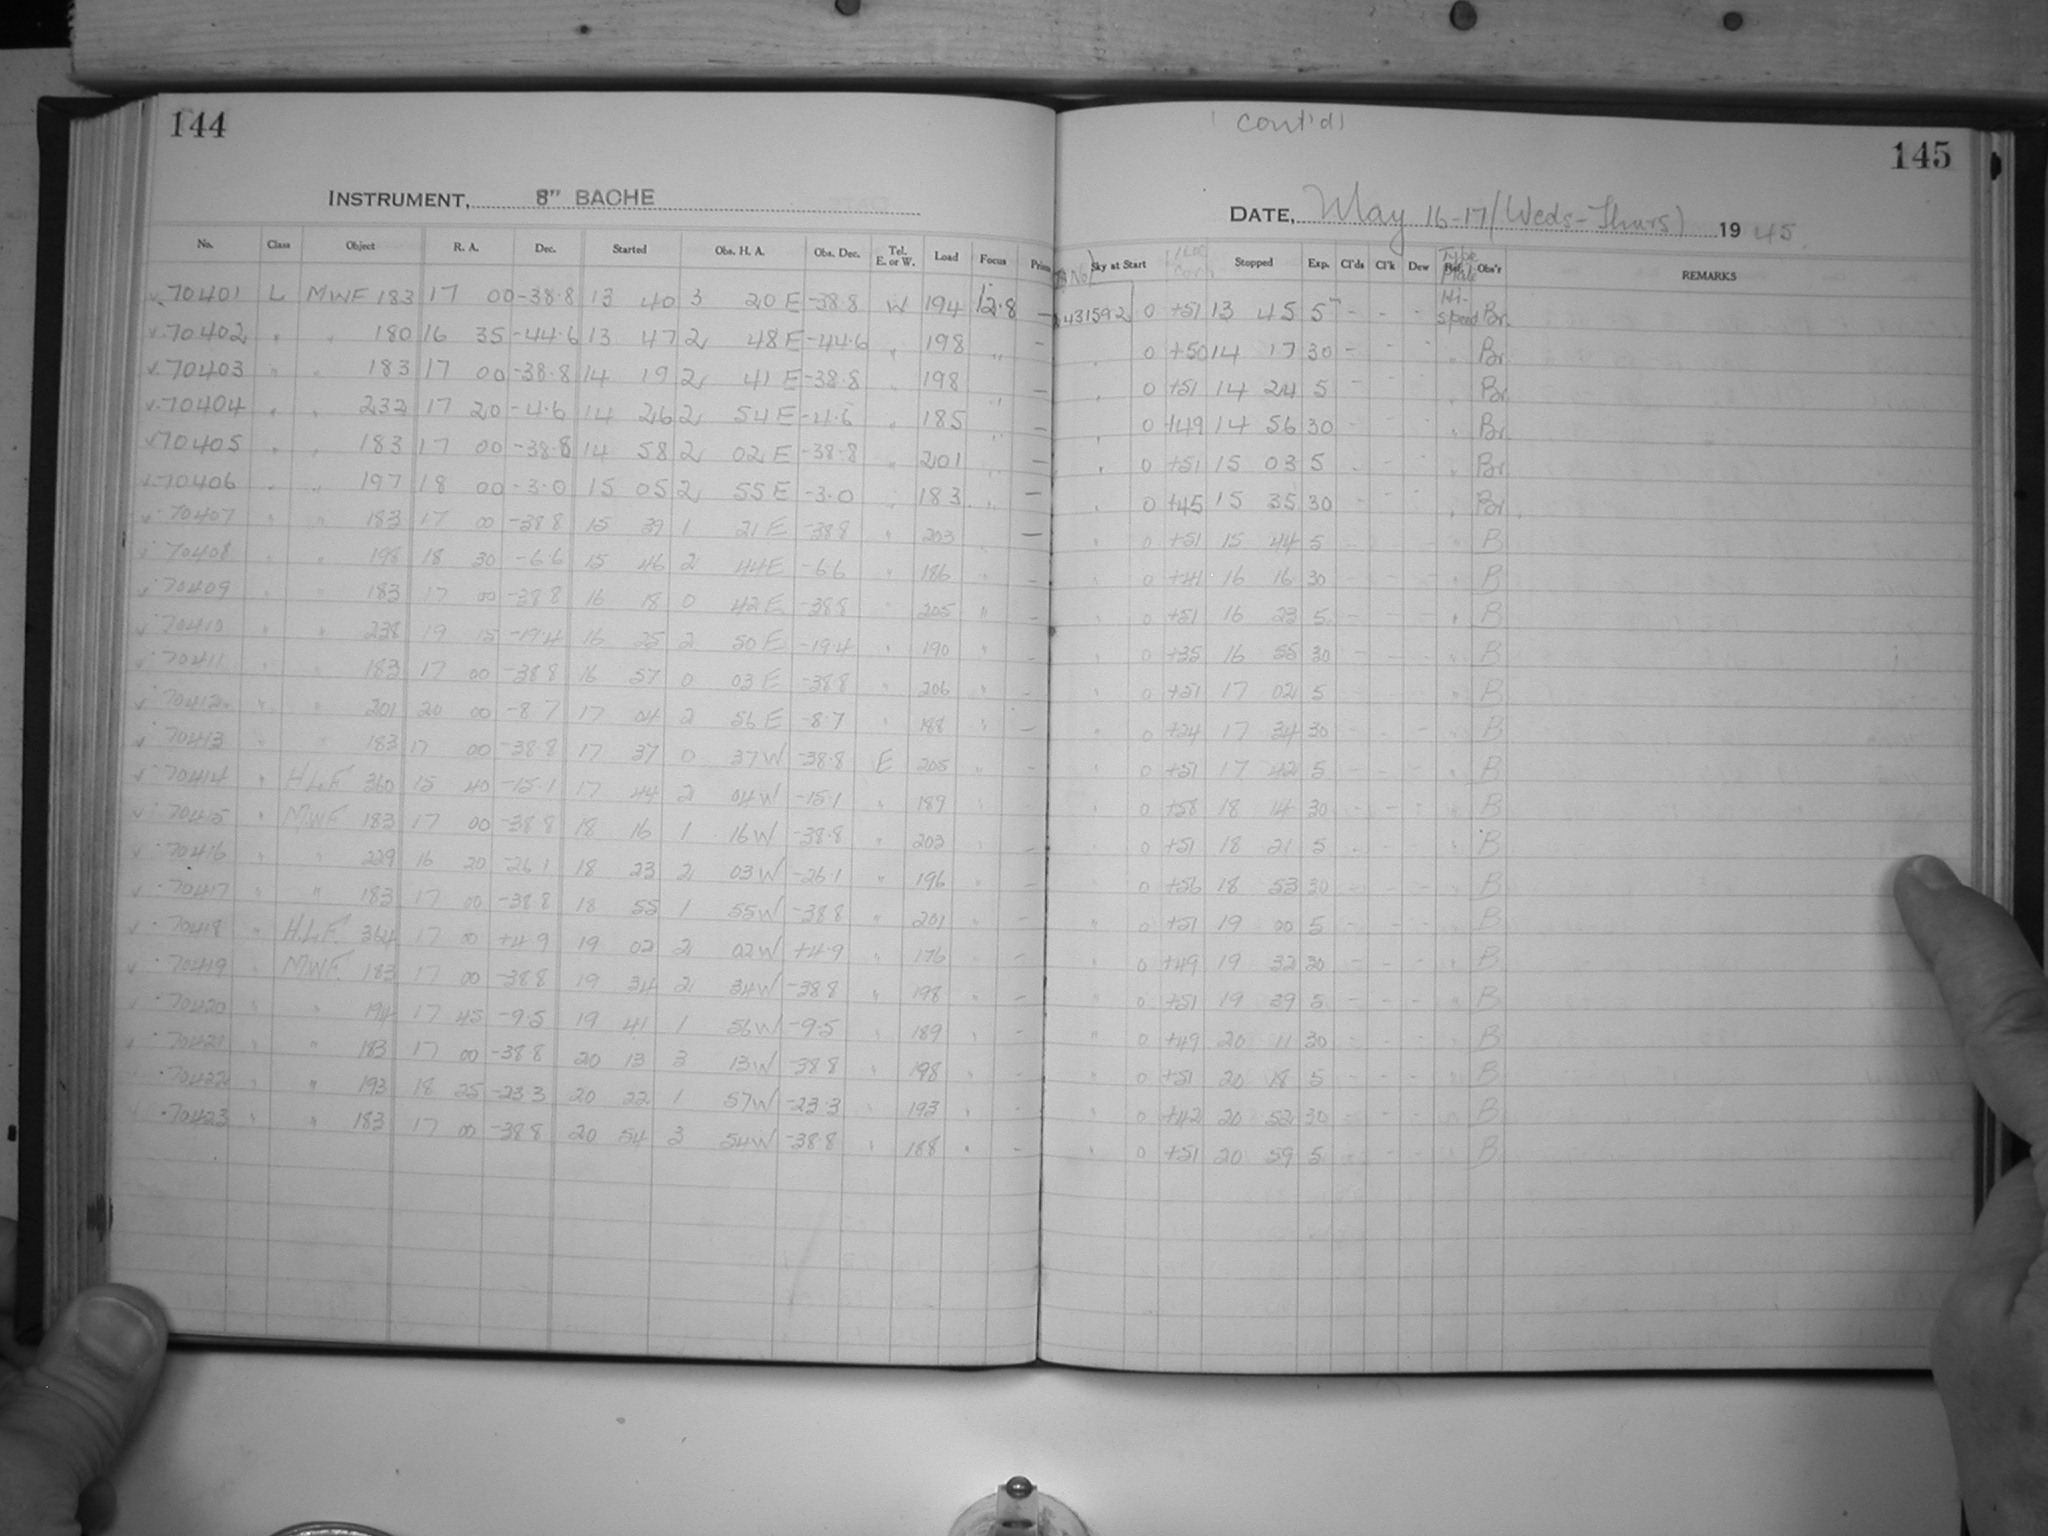 144
INSTRUMENT, 8" BACHE
No. Class Object R. A. Dec. Started Obs. H. A. Obs. Dec. Tel. E. or W. Load Focus
70401 L MWF 183 17 00 -38.8 13 40 3 20 E -38.8 W 194 12.8 —
70402 " " 180 16 35 -44.6 13 47 2 48 E -44.6 " 198 " —
70403 " " 183 17 00 -38.8 14 19 2 41 E -38.8 198 " —
70404 " " 232 17 20 -4.6 14 26 2 54 E -4.6 " 185 —
70405 " " 183 17 00 -38.8 14 58 2 02 E -38.8 " 201 " —
70406 " " 197 18 00 -3.0 15 05 2 55 E -3.0 " 183 " —
70407 " " 183 17 00 -38.8 15 39 1 21 E -38.8 " 203 —
70408 " " 198 18 30 -6.6 15 46 2 44 E -6.6 " 186 " —
70409 " 183 17 00 -38.8 16 18 0 42 E -38.8 205 " —
70410 " " 238 19 15 -19.4 16 25 2 50 E -19.4 " 190 " —
70411 " " 183 17 00 -38.8 16 57 0 03 E -38.8 " 206 " —
70412 " " 201 20 00 -8.7 17 04 2 56 E -8.7 " 188 " —
70413 " 183 17 00 -38.8 17 37 0 37 W -38.8 E 205 " —
70414 " H.L.F. 360 15 40 -15.1 17 44 2 04 W -15.1 " 189 " —
70415 " MWF 183 17 00 -38.8 18 16 1 16 W -38.8 " 203 " —
70416 " " 229 16 20 -26.1 18 23 2 03 W -26.1 " 196 " —
70417 " " 183 17 00 -38.8 18 55 1 55 W -38.8 " 201 " —
70418 " H.L.F. 364 17 00 +4.9 19 02 2 02 W +4.9 " 176 —
70419 " MWF. 183 17 00 -38.8 19 34 2 34 W -38.8 " 198 " —
70420 " " 194 17 45 -9.5 19 41 1 56 W -9.5 " 189 " —
70421 " " 183 17 00 -38.8 20 13 3 13 W -38.8 " 198 " —
70422 " " 193 18 25 -23.3 20 22 1 57 W -23.3 " 193 " —
70423 " " 183 17 00 -38.8 20 54 3 54 W -38.8 " 188 " —
(cont'd)
145
DATE, May 16-17 (Weds-Thurs) 1945.
No. Sky at Start Stopped Exp. Cl'ds Cl'k Dew Type Plate Obs'r REMARKS
431592 0 +51 13 45 5m - - - Hi-speed Br.
" 0 +50 14 17 30 - - - " Br
" 0 +51 14 24 5 - - - " Br
" 0 +49 14 56 30 - - - " Br
" 0 +51 15 03 5 - - - " Br
" 0 +45 15 35 30 - - - " Br.
" 0 +51 15 44 5 - - - " B
" 0 +41 16 16 30 - - - " B
" 0 +51 16 23 5 - - - " B
" 0 +35 16 55 30 - - - " B
" 0 +51 17 02 5 - - - " B
" 0 +24 17 34 30 - - - " B
" 0 +51 17 42 5 - - - " B
" 0 +58 18 14 30 - - - " B
" 0 +51 18 21 5 - - - " B
" 0 +56 18 53 30 - - - " B
" 0 +51 19 00 5 - - - " B
" 0 +49 19 32 30 - - - " B
" 0 +51 19 39 5 - - - " B
" 0 +49 20 11 30 - - - " B
" 0 +51 20 18 5 - - - " B
" 0 +42 20 52 30 - - - " B
" 0 +51 20 59 5 - - - " B